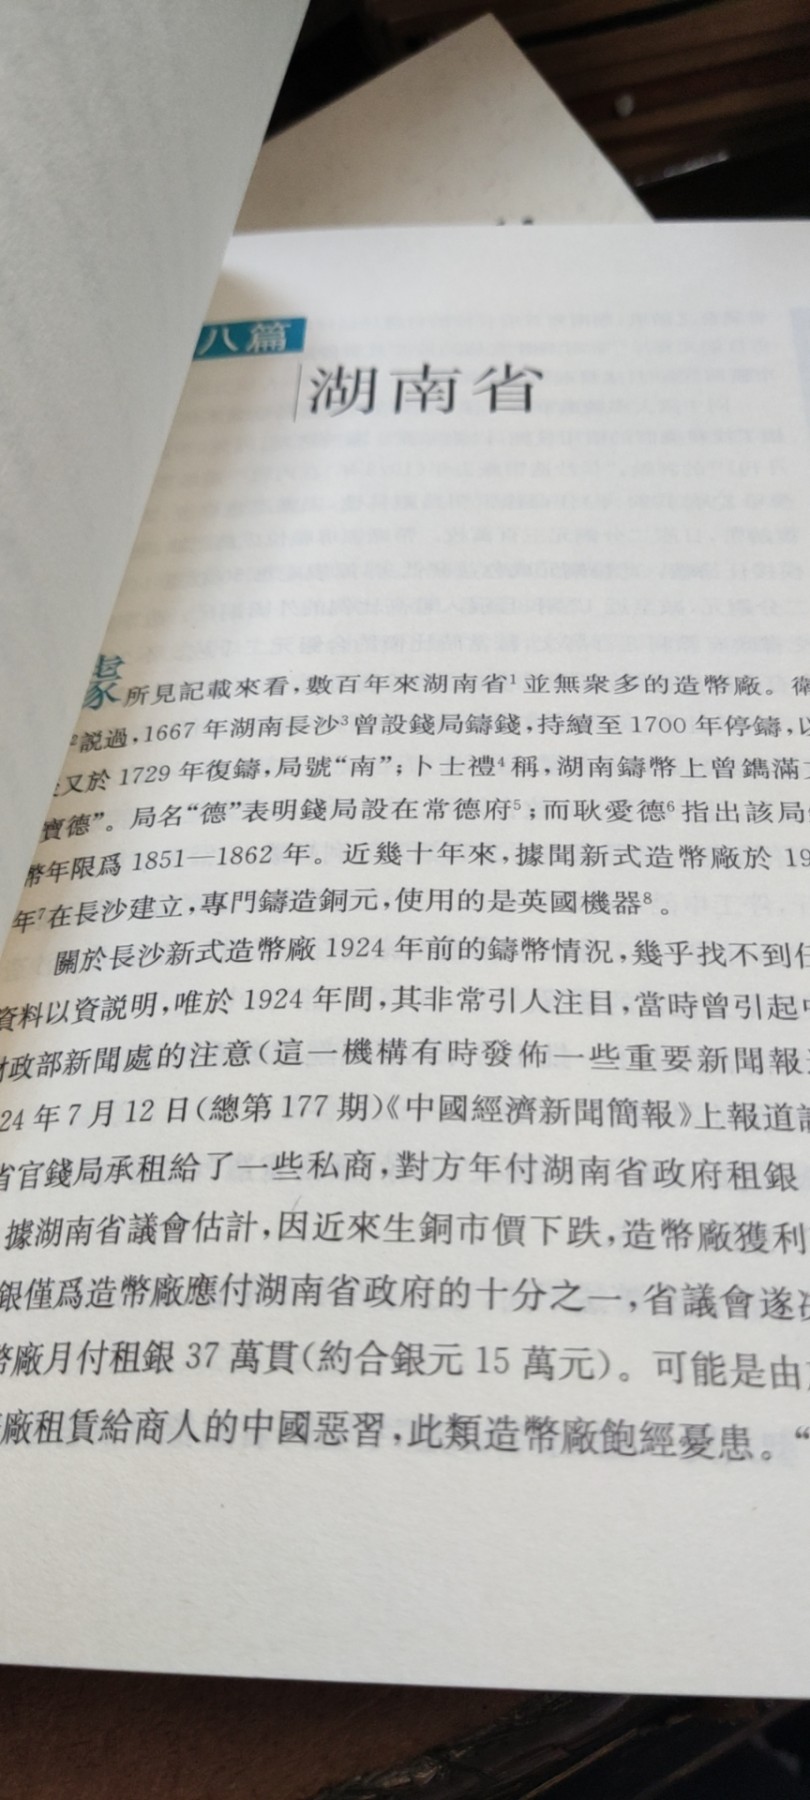 八篇
湖南省
據所見記載來看，數百年來湖南省¹並無衆多的造幣廠。
²説過，1667年湖南長沙³曾設錢局鑄錢，持續至1700年停鑄，以
又於1729年復鑄，局號“南”；卜士禮⁴稱，湖南鑄幣上曾鐫滿文
寶德”。局名“德”表明錢局設在常德府⁵；而耿愛德⁶指出該局
幣年限爲1851—1862年。近幾十年來，據聞新式造幣廠於19
年⁷在長沙建立，專門鑄造銅元，使用的是英國機器⁸。
關於長沙新式造幣廠1924年前的鑄幣情況，幾乎找不到任
資料以資説明，唯於1924年間，其非常引人注目，當時曾引起中
財政部新聞處的注意（這一機構有時發佈一些重要新聞報
24年7月12日（總第177期）《中國經濟新聞簡報》上報道
省官錢局承租給了一些私商，對方年付湖南省政府租銀
據湖南省議會估計，因近來生銅市價下跌，造幣廠獲利
銀僅爲造幣廠應付湖南省政府的十分之一，省議會遂決
幣廠月付租銀37萬貫（約合銀元15萬元）。可能是由
廠租賃給商人的中國惡習，此類造幣廠飽經憂患。“